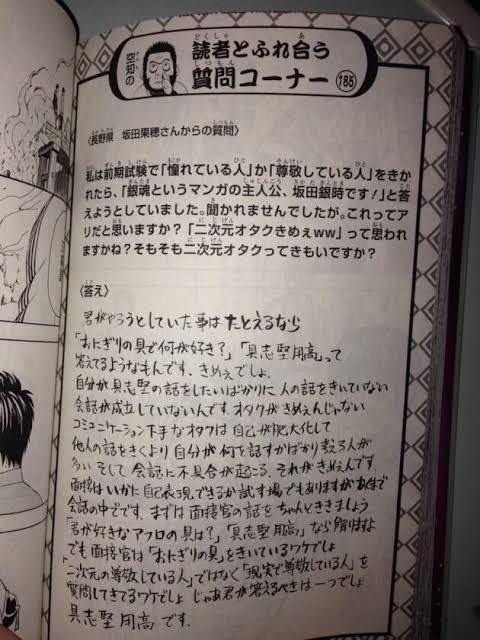 空知の
読者とふれ合う
質問コーナー
185
〈長野県 坂田果穂さんからの質問〉
私は前期試験で「憧れている人」か「尊敬している人」をきか
れたら、「銀魂というマンガの主人公、坂田銀時です！」と答
えようとしていました。聞かれませんでしたが。これってア
リだと思いますか？「二次元オタクきめぇｗｗ」って思われ
ますかね？そもそも二次元オタクってきもいですか？
〈答え〉
君がやろうとしていた事はたとえるなら
「おにぎりの具で何が好き？」「具志堅用高」って
答えてるようなもんです、きめぇでしょ。
自分が具志堅の話をしたいばかりに人の話をきいていない
会話が成立していないんです。オタクがきめぇんじゃない
コミュニケーション下手なオタクは自己が肥大化して
他人の話をきくより自分が何を話すかばかり考える人が
多い そして会話に不具合が起こる。それがきめぇんです
面接はいかに自己表現できるか試す場でもありますがあくまで
会話の中でです。まずは面接官の話をちゃんとききましょう
「君が好きなアフロの具は？」「具志堅用高」なら解りますよ
でも面接官は「おにぎりの具」をきいているワケでしょ
「二次元の尊敬している人」ではなく「現実で尊敬している人」を
質問してきてるワケでしょ じゃあ君が答えるべきは一つでしょ
具志堅用高です。